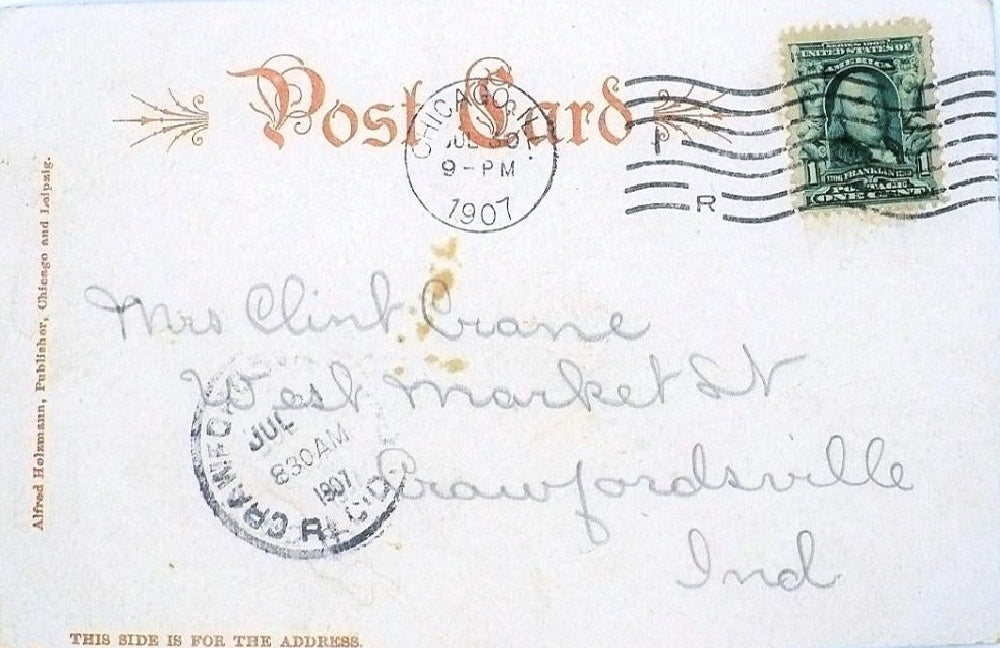 Post Card
CHICAGO,
JUL 30
9-PM
1907
R
SERIES 1902
UNITED STATES OF
AMERICA
1 FRANKLIN 1
POSTAGE
ONE CENT
Alfred Holzmann, Publisher, Chicago and Leipzig.
Mrs Clint Crane
West Market St
Crawfordsville
Ind
CRAWFO
JUL
830AM
1907
REC'D.
THIS SIDE IS FOR THE ADDRESS.